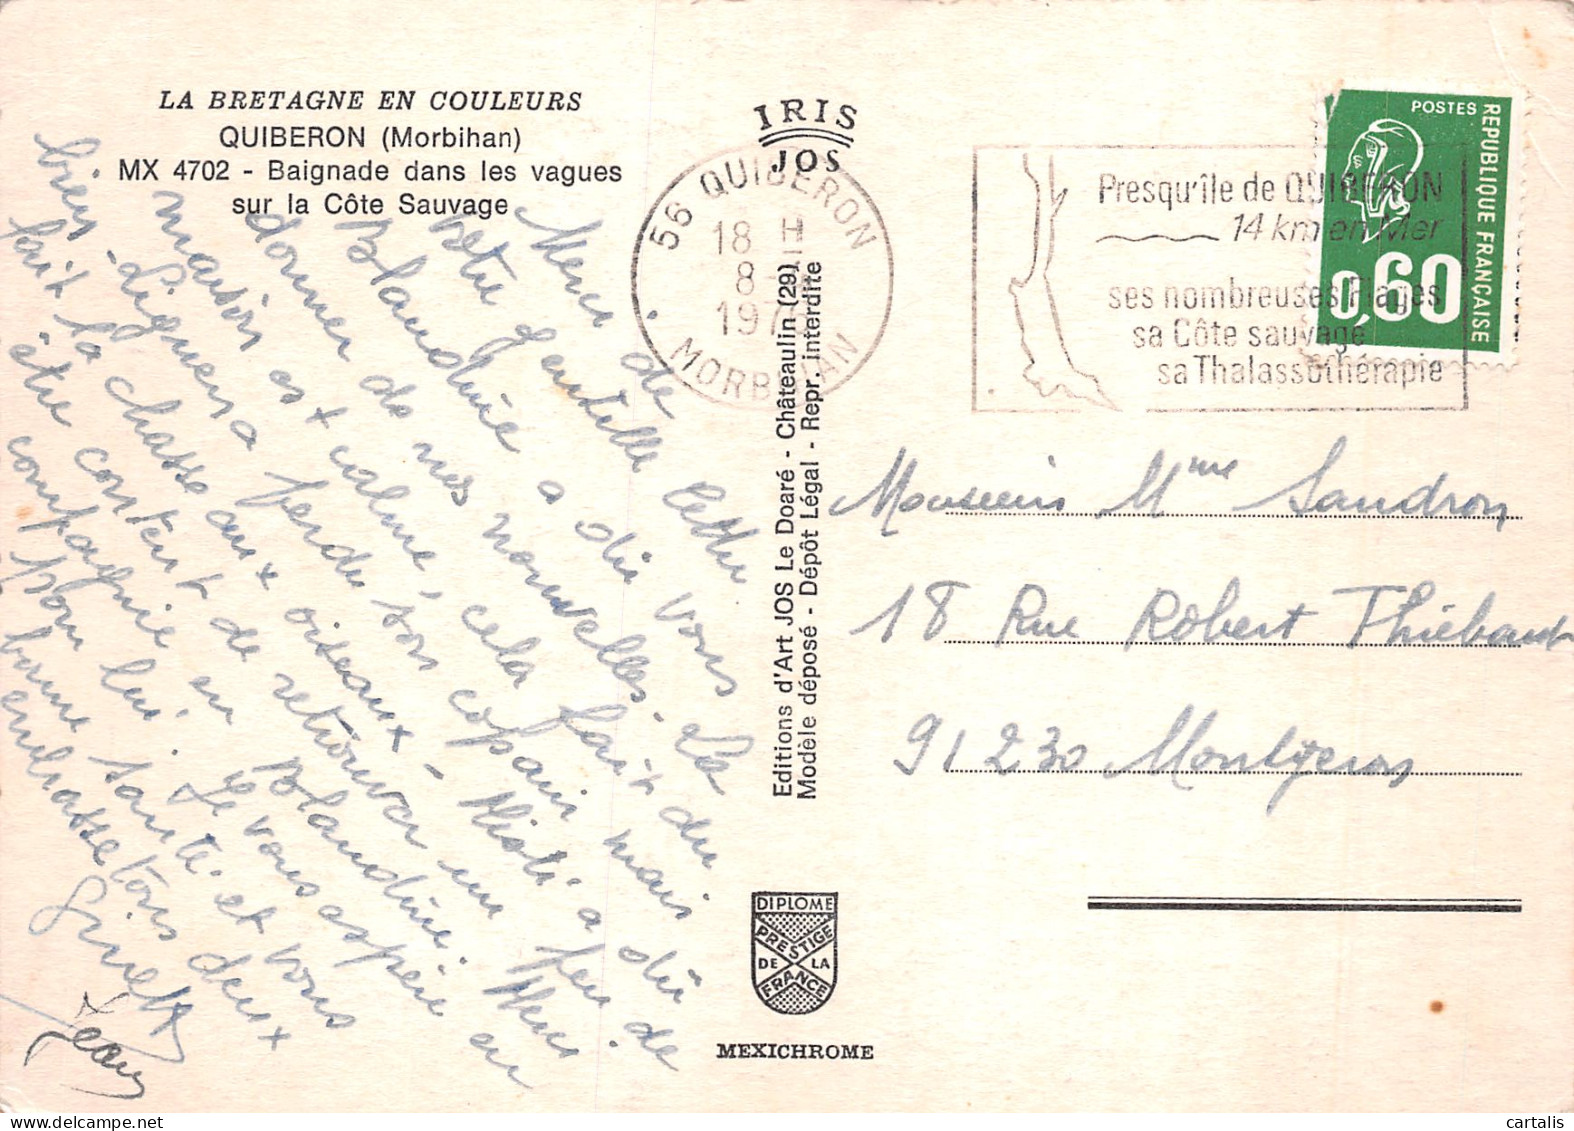 LA BRETAGNE EN COULEURS
QUIBERON (Morbihan)
MX 4702 - Baignade dans les vagues
sur la Côte Sauvage
Merci de votre gentille lettre
Blandine a dû vous
donner de nos nouvelles. La
maison est calme, cela fait du
bien. Ligueur a perdu son copain mais
fait la chasse aux oiseaux - a dû
être content de retrouver un peu de
compagnie en Blandine. 
pour lui. Je vous espère en
bonne santé et vous
embrasse tous deux
Ginette
Jean
IRIS
JOS
Editions d'Art JOS Le Doaré - Châteaulin (29)
Modèle déposé - Dépôt Légal - Repr. interdite
56 QUIBERON
18 H
8
197
MORBIHAN
Presqu'île de QUIBERON
14 km en Mer
ses nombreuses Plages
sa Côte sauvage
sa Thalassothérapie
POSTES
REPUBLIQUE FRANÇAISE
0,60
Monsieur Mme Sandron
18 Rue Robert Thiébaut
91230 Montgeron
DIPLOME
PRESTIGE
DE LA
FRANCE
MEXICHROME
cartalis